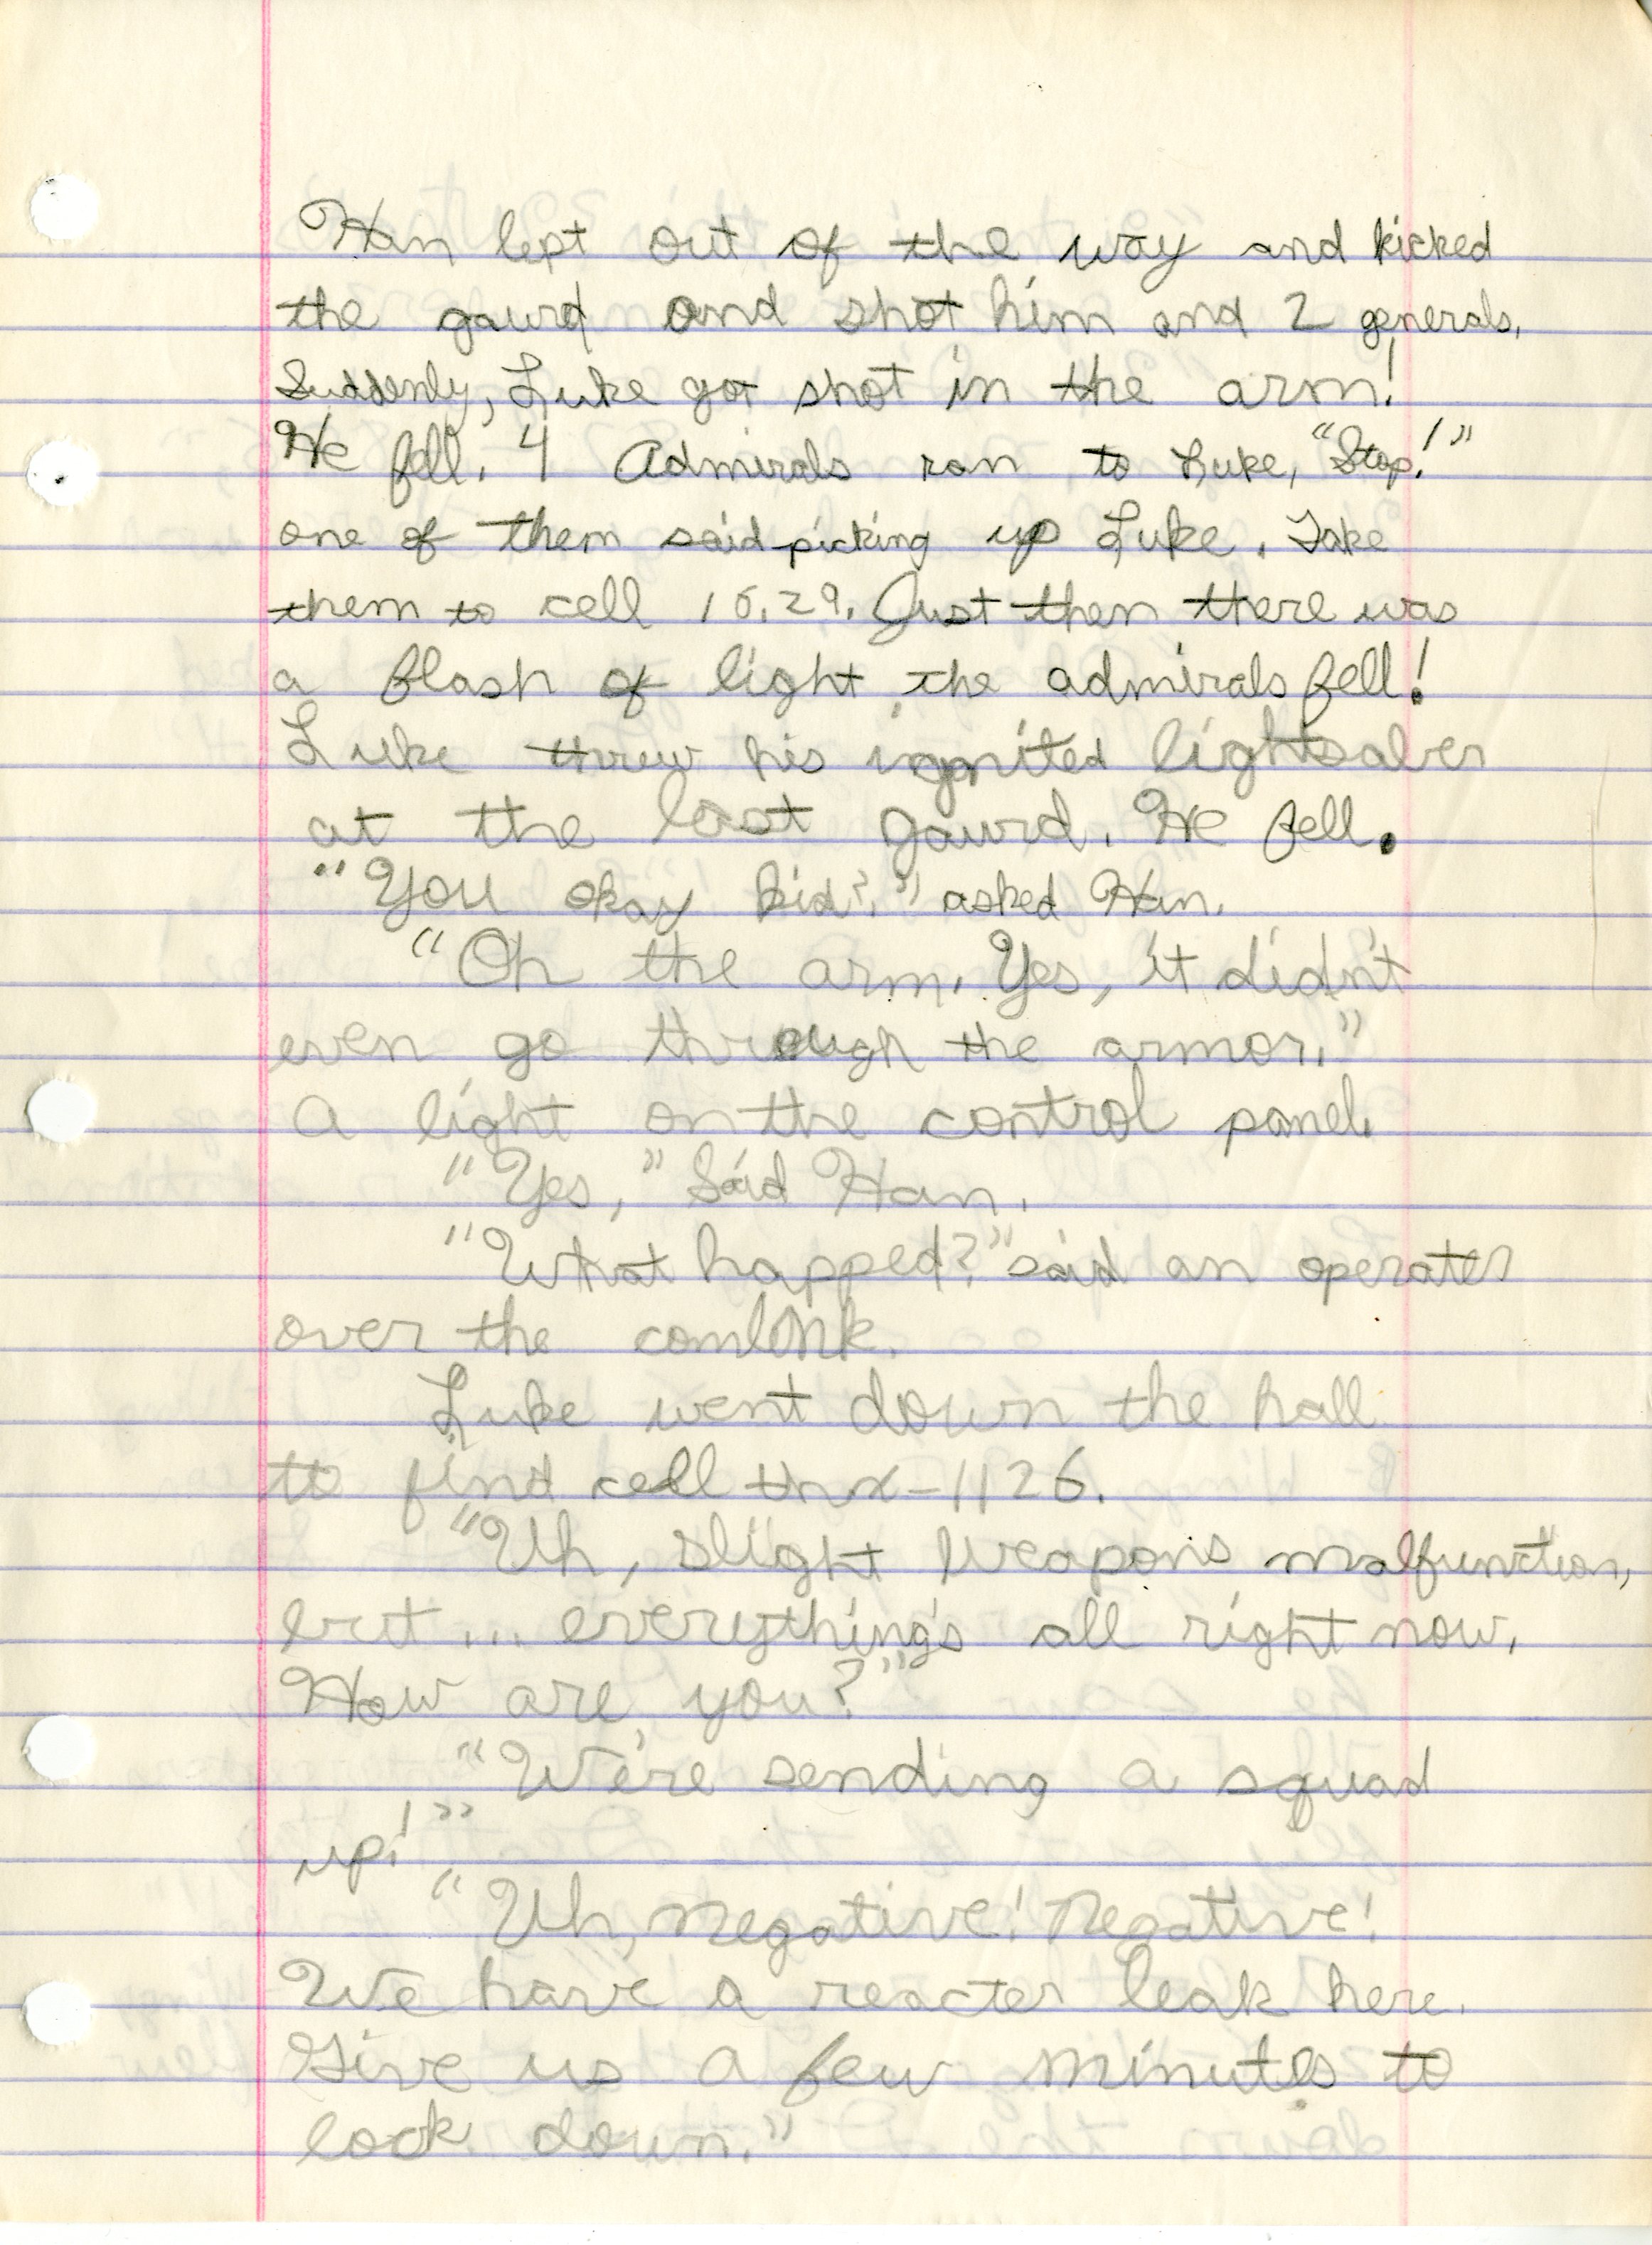 Han lept out of the way and kicked
the gaurd and shot him and 2 generals.
Suddenly, Luke got shot in the arm!
He fell. 4 Admirals ran to Luke, "Stop!"
one of them said picking up Luke. Take
them to cell 15.29. Just then there was
a flash of light, the admirals fell!
Luke threw his ignited lightsaber
at the last gaurd. He fell.
"You okay kid?," asked Han.
"Oh the arm. Yes, it didn't
even go through the armor."
A light on the control panel.
"Yes," Said Han.
"What happed?" said an operater
over the comlink.
Luke went down the hall
to find cell thx-1126.
"Uh, slight weapons malfunction,
but... everything's all right now.
How are you?"
"We're sending a squad
up!"
"Uh, negative! negative!
We have a reacter leak here.
Give us a few minutes to
lock down."